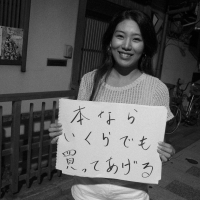 本なら
いくらでも
買ってあげる